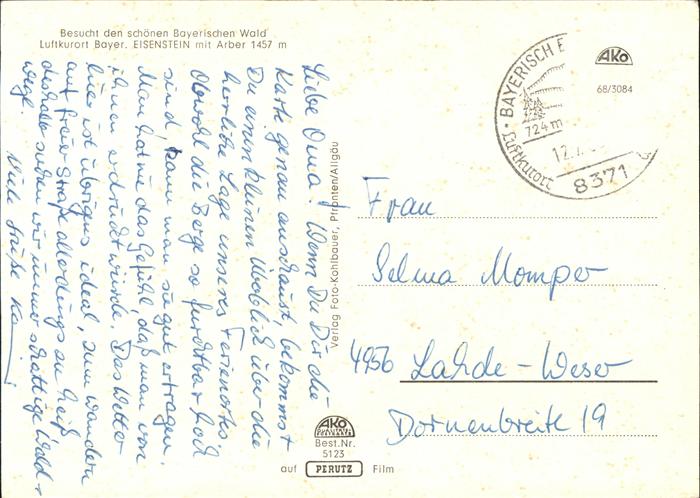 Besucht den schönen Bayerischen Wald
Luftkurort Bayer. EISENSTEIN mit Arber 1457 m
Liebe Oma! Wenn Du Dir die
Karte genau anschaust, bekommst
Du einen kleinen Überblick über die
herrliche Lage unseres Ferienortes.
Obwohl die Berge so furchtbar hoch
sind, kann man sie gut ertragen.
Man hat nie das Gefühl, daß man von
ihnen erdrückt würde. Das Wetter
hier ist übrigens ideal, zum Wandern
auf freier Straße allerdings zu heiß
deshalb suchen wir immer schattige Wald-
wege.
Viele Grüße
Verlag Foto-Kohlbauer, Pfronten/Allgäu
BAYERISCH E
724 m
Luftkurort
12.
8371
AKO
68/3084
Frau
Selma Momper
4956 Lahde-Weser
Dornenbreite 19
AKO
QUALITÄTS
POSTKARTE
Best.Nr.
5123
auf PERUTZ Film